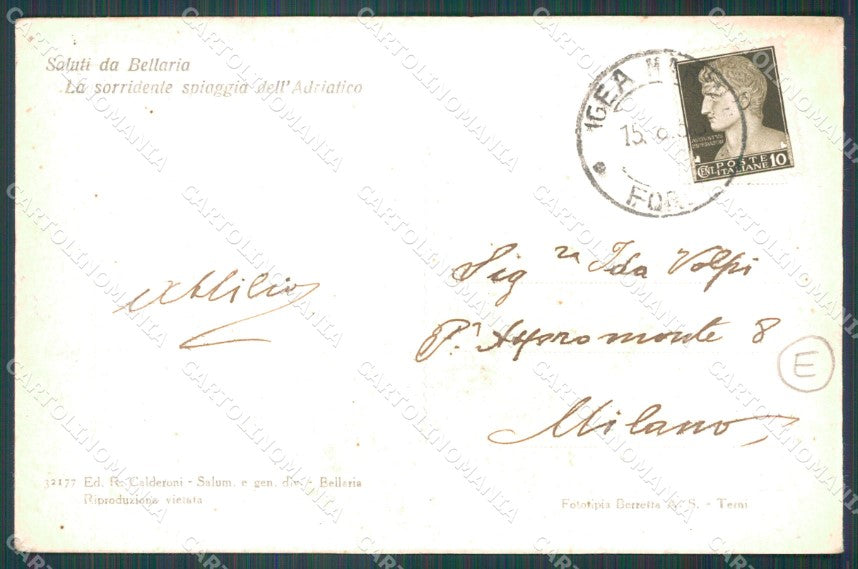 Saluti da Bellaria
La sorridente spiaggia dell'Adriatico
IGEA MA
15. 9. 3
FOR
POSTE
CENT. ITALIANE 10
Sig ra Ida Volpi
P.za Aspromonte 8
E
Milano
32177 Ed. R. Calderoni - Salum. e gen. div. - Bellaria
Riproduzione vietata
Fototipia Berretta & S. - Terni
CARTOLINOMANIA